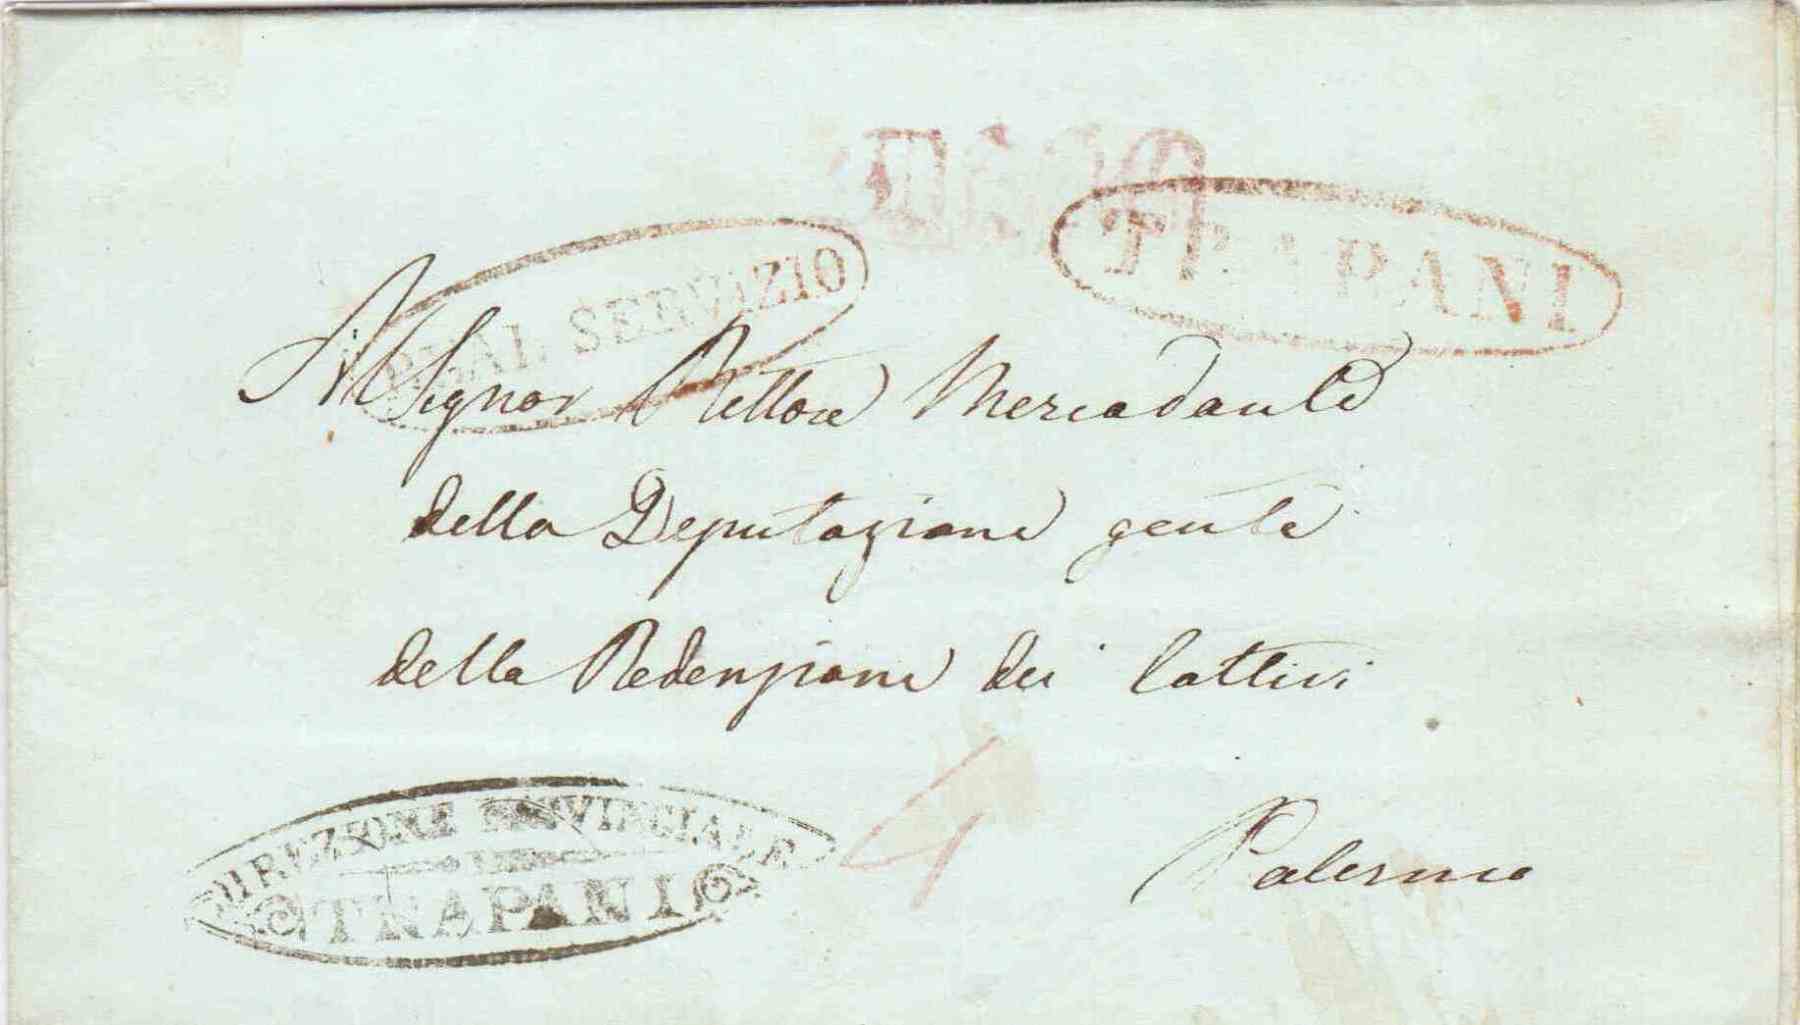 TRAPANI
REAL SERVIZIO
Al Signor Rettore Mercadante
della Deputazione gente
della Redenzione dei Cattivi
Palermo
4
DIREZIONE PROVINCIALE
TRAPANI